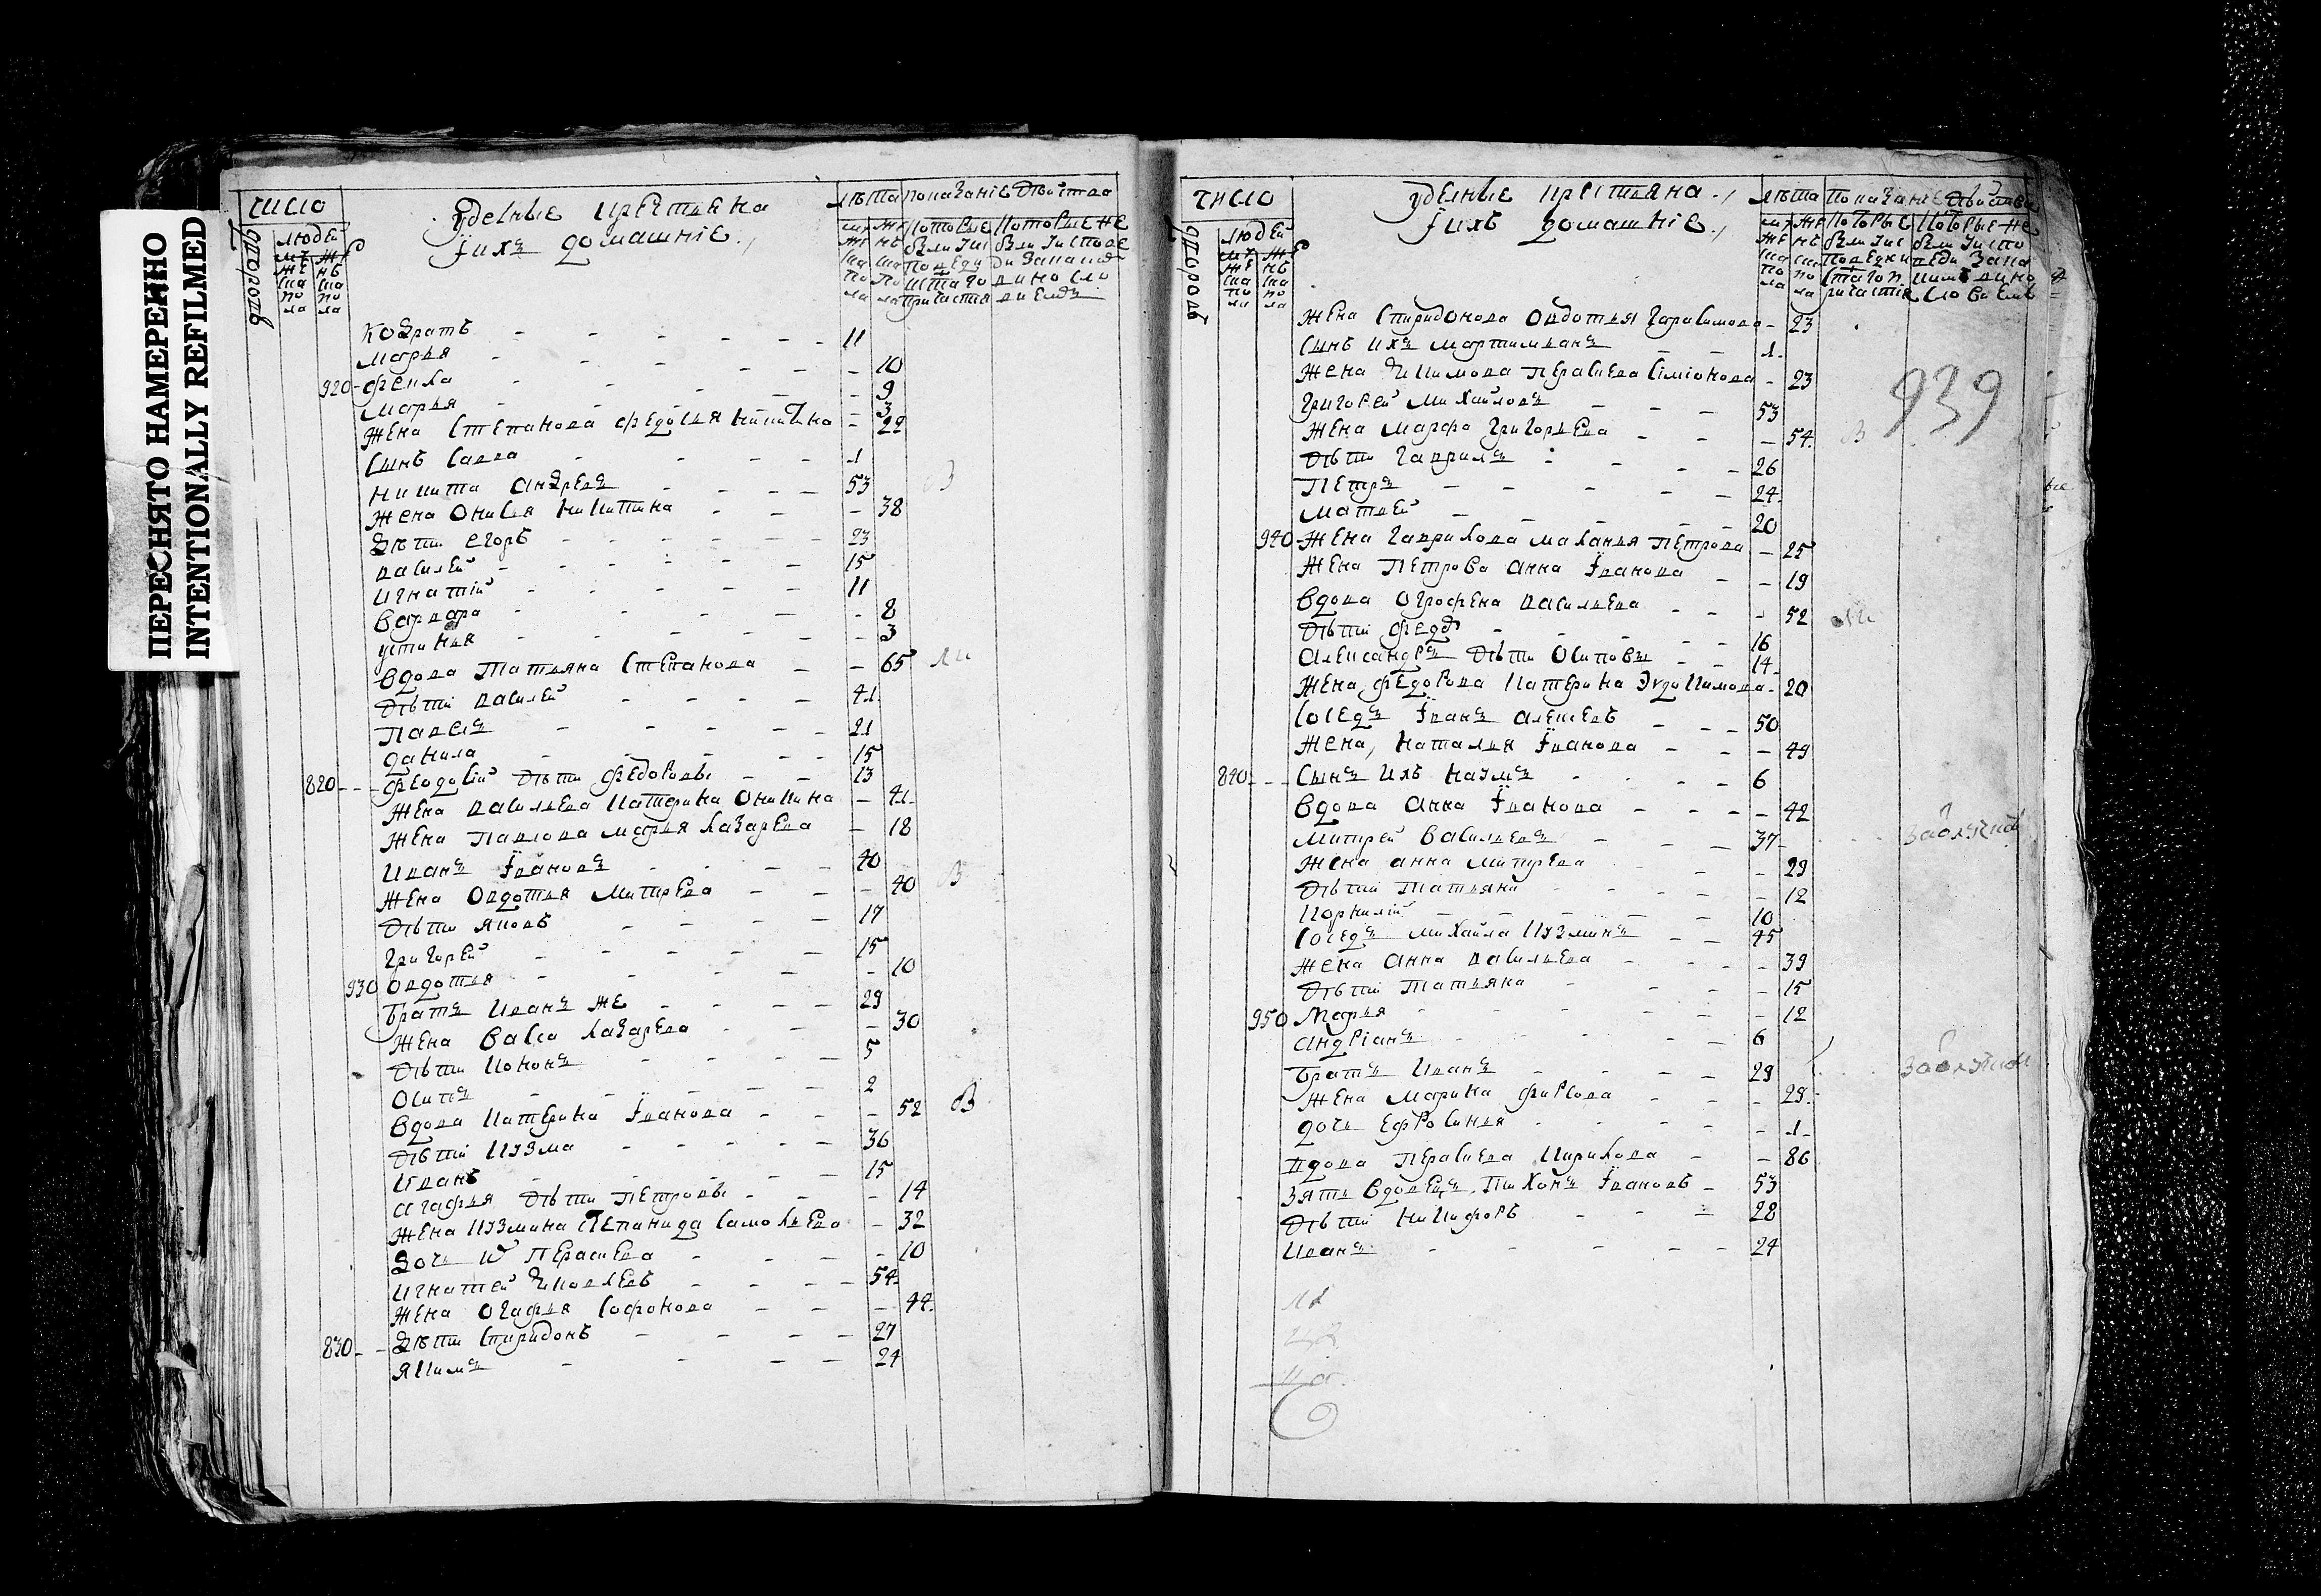 ПЕРЕСНЯТО НАМЕРЕННО
INTENTIONALLY REFILMED
число
дворовъ
людей
муже ска по ла
же нь ска по ла
Уделные крестьяна
їихъ домашніе
лѣта
показаніе двоіства
Кодратъ 11
Марья 10
920 Фекла 9
Марья 3
Жена Степанова Федосья Никитина 22
Сынъ Савва 1
Никита Андреевъ 53
Жена Онисья Никитина 38
Дѣти Егоръ 23
Василей 15
Игнатій 11
Варвара 8
Устинья 3
Вдова Татьяна Степанова 65
Дѣти Василей 41
Павелъ 21
Данила 15
820 Феодосій дѣти Федоровы 13
Жена Васильева Катерина Оникина 41
Жена Павлова Марья Лазарева 18
Иванъ Їванов 40
Жена Овдотья Митрева 40 В
Дѣти Яковъ 17
Григорей 15
930 Овдотья 10
Братъ Иванъ же 29
Жена Васса Лазарева 30
Дѣти Кононъ 5
Осипъ 2
Вдова Катерина Їванова 52 В
Дѣти Кузма 36
Иванъ 15
Агафья дѣти Петровы 14
Жена Кузмина Степанида Самойлева 32
Дочь Ѡ Перасиева 10
Игнатей Яковлевъ 54
Жена Огафья Софонова 44
830 Дѣти Спиридонъ 27
Якимъ 24
число
дворовъ
людей
муже ска по ла
же нь ска по ла
Уделные крестьяна
їихъ домашніе
лѣта
показаніе двоіства
Жена Спиридонова Овдотья Гарасимова 23
Сынъ ихъ Мартимианъ 1
Жена Якимова Перасиева Симіонова 23
939
Григорей Михайловъ 53
Жена Марфа Григорьева 54 В
Дѣти Гаврилъ 26
Петръ 24
Матвей 20
940 Жена Гаврилова Маланья Петрова 25
Жена Петрова Анна Їванова 19
Вдова Огрофена Васильева 52
Дѣти Федо 16
Александръ дѣти Осиповы 14
Жена Федорова Катерина Эвдокимова 20
Соседъ Їванъ Алексеевъ 50
Жена, Наталья Їванова 49
840 Сынъ ихъ Наумъ 6
Вдова Анна Їванова 42
Митрей Васильевъ 37
Жена Анна Митрева 29
Дѣти Татьяна 12
Корнилій 10
Соседъ Михайла Кузминъ 45
Жена Анна Васильева 39
Дѣти Татьяна 15
950 Марья 12
Андріанъ 6
Братъ Иванъ 29
Жена Марина Фирсова 29
Дочь Ефросинья 1
Вдова Перасиева Кирилова 86
Зять вдовецъ Тихонъ Ївановъ 53
Дѣти Никифоръ 28
Иванъ 24